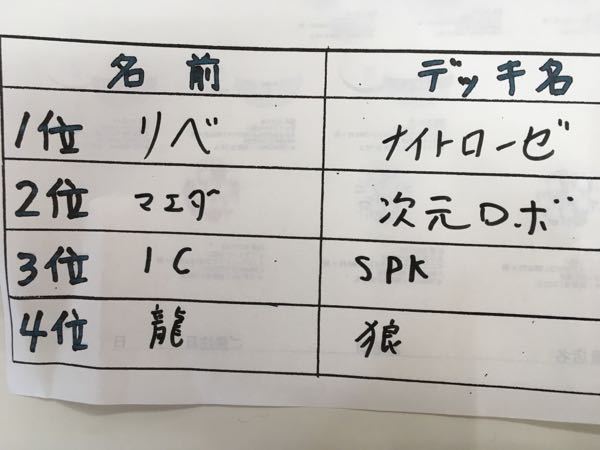 名前 デッキ名
1位 リベ ナイトローゼ
2位 マエダ 次元ロボ
3位 IC SPK
4位 龍 狼